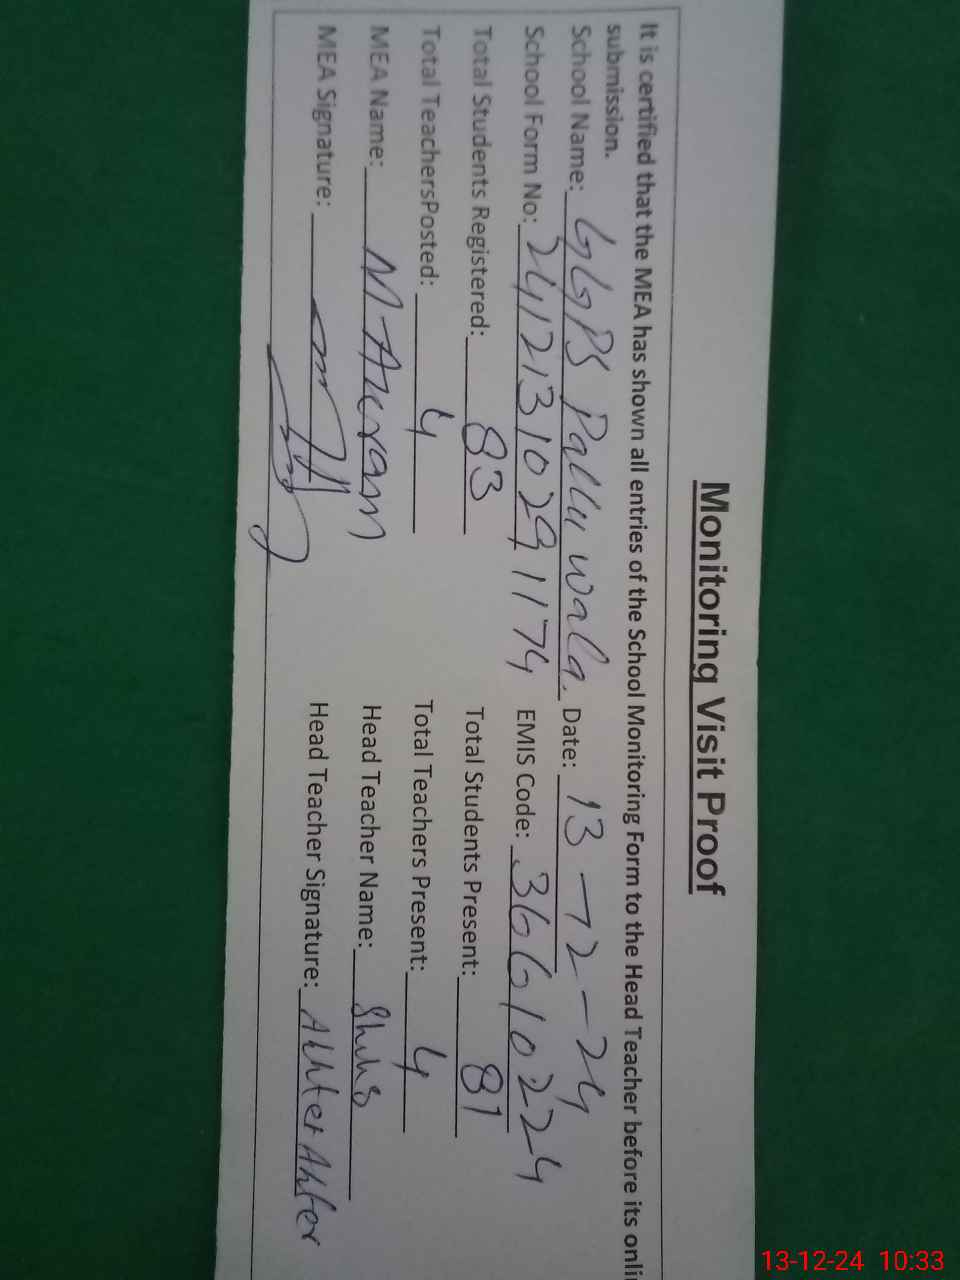 Monitoring Visit Proof
It is certified that the MEA has shown all entries of the School Monitoring Form to the Head Teacher before its onli
submission.
School Name: GGPS Pallu wala. Date: 13-12-24
School Form No: 24121310291174 EMIS Code: 36610224
Total Students Registered: 83 Total Students Present: 81
Total TeachersPosted: 4 Total Teachers Present: 4
MEA Name: M Akram Head Teacher Name:
MEA Signature: Head Teacher Signature: Akhter Akhter
13-12-24 10:33